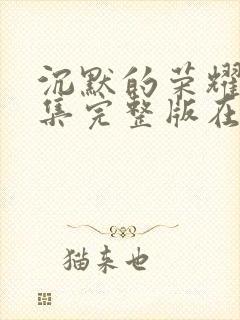 沉默的荣耀
集完整版在
猫来也